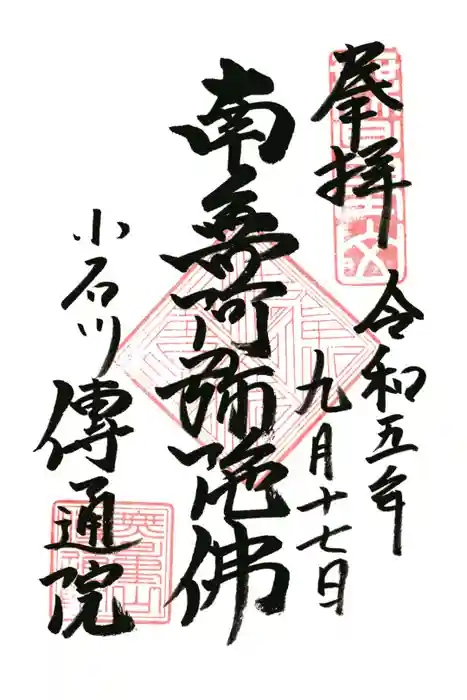 奉拝
令和五年
九月十七日
南無阿弥陀佛
小石川
傳通院
無量山